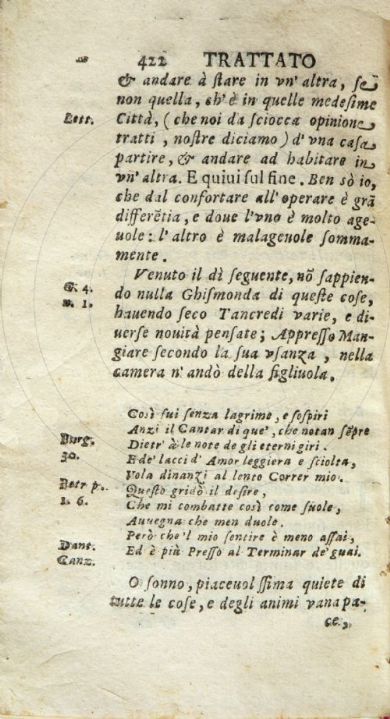 422 TRATTATO
& andare à stare in vn' altra, se
non quella, ch' è in quelle medesime
Lett. Città, (che noi da sciocca opinione
tratti, nostre diciamo) d' vna casa
partire, & andare ad habitare in
vn' altra. E quiui sul fine. Ben sò io,
che dal confortare all' operare è grã
differẽtia, e doue l'vno è molto age-
uole: l' altro è malageuole somma-
mente.
Venuto il dì seguente, nõ sappien-
G. 4. do nulla Ghismonda di queste cose,
n. 1. hauendo seco Tancredi varie, e di-
uerse nouità pensate; Appresso Man-
giare secondo la sua vsanza, nella
camera n' andò della figliuola.
Così fui senza lagrime, e sospiri
Anzi il Cantar di que', che notan sẽpre
Purg. Dietr' à le note de gli eterni giri.
30. Ed e' lacci d' Amor leggiera e sciolta,
Vola dinanzi al lento Correr mio.
Petr p. Questo gridò il desire,
1. 6. Che mi combatte così come suole,
Auuegna che men duole.
Però che'l mio sentire è meno assai,
Dant. Ed è più Presso al Terminar de' guai.
Canz.
O sonno, piaceuol ssima quiete di
tutte le cose, e degli animi vana pa-
ce,